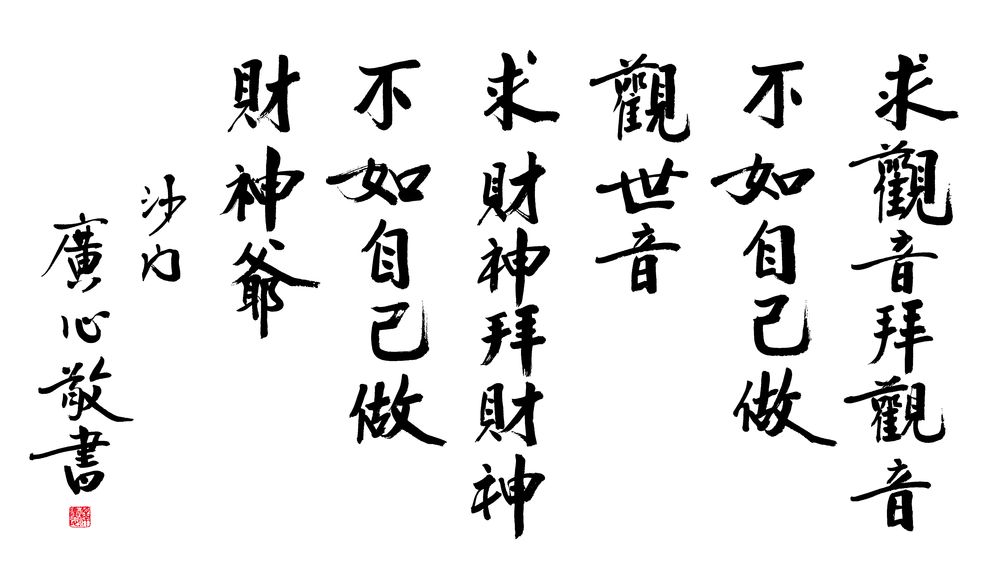 求觀音拜觀音
不如自己做
觀世音
求財神拜財神
不如自己做
財神爺
沙門
廣心敬書